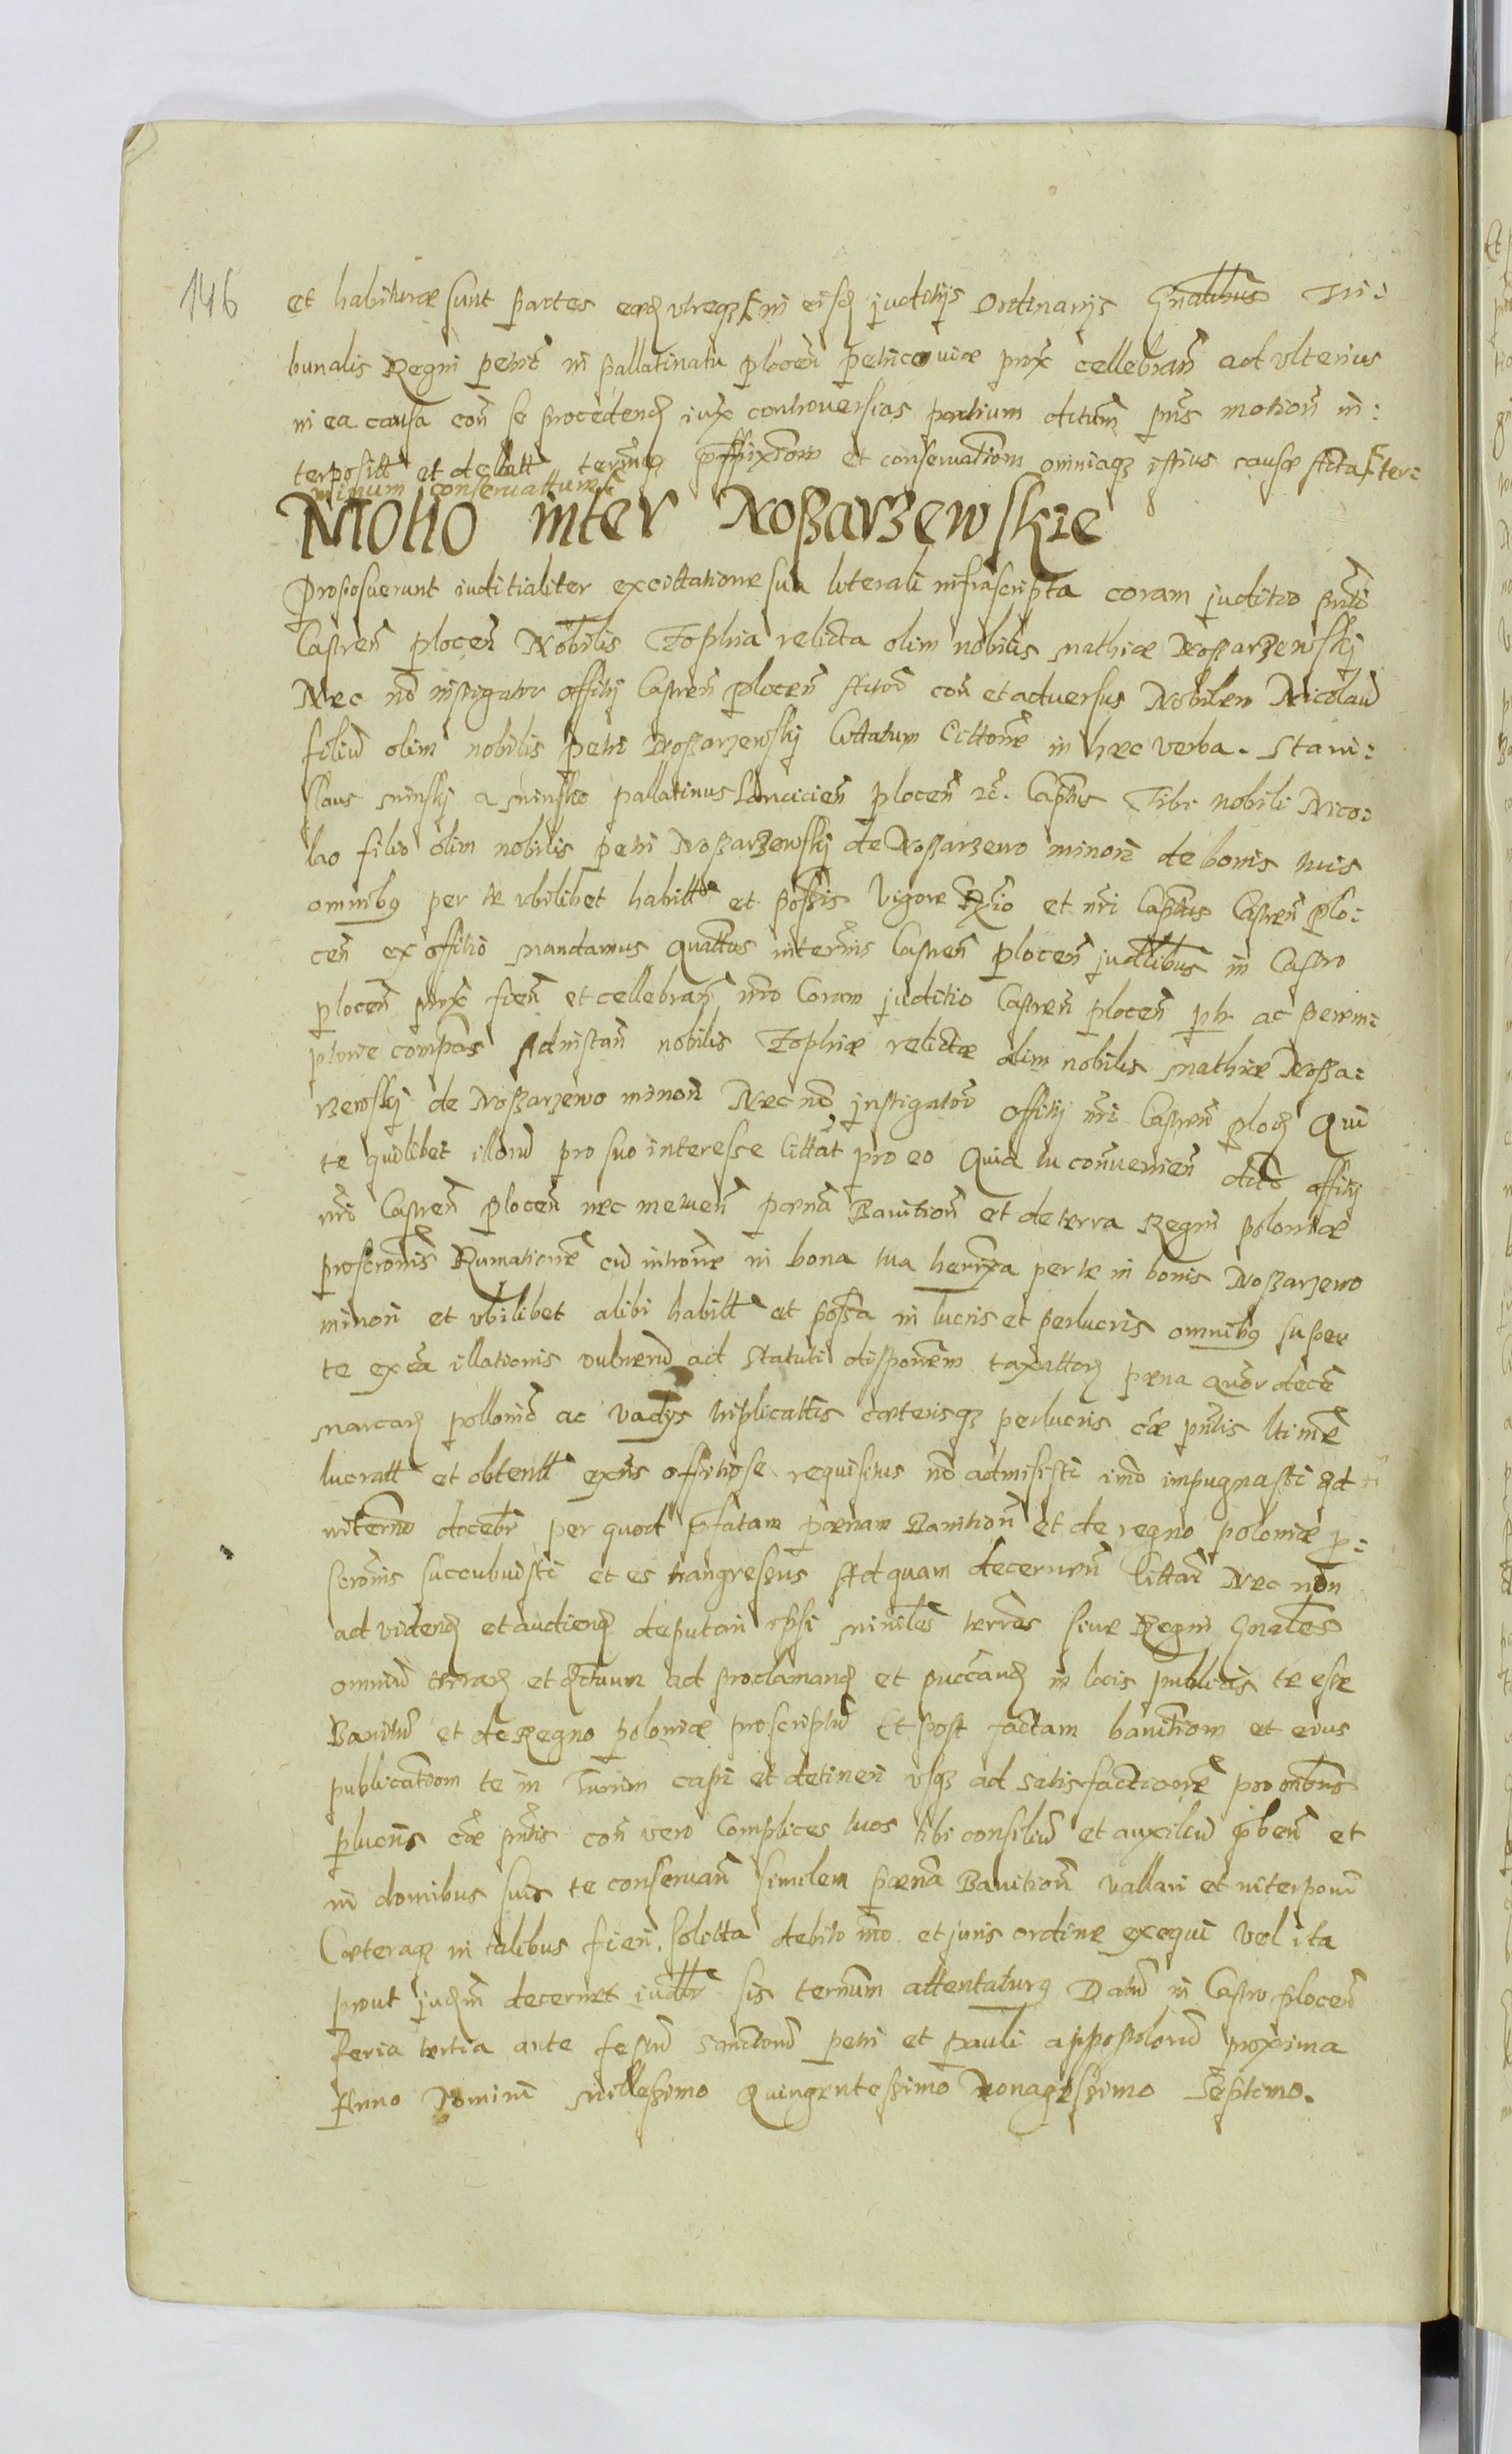 146
et habituræ sunt partes eædẽ utreq3 in eisdẽ juditijs Ordinarijs Gñalibus Tri:
bunalis Regni petrit in Pallatinatu plocen̄ petricouiæ prox̃ cellebran̄ ad ulterius
in ea causa con̄ se procedend iux̃ controuersias partium dictum pñs motion̄ in:
terposittt et dellatt termĩo p̃ffixiom̃ et conseruatiom̃ omniaq3 istius causæ fta ter:
minum conseruattum
Motio inter Noßarzewskie
Proposuerunt juditialiter ex cittatione sua literali infrascripta coram juditio pñti
Castren̄ plocen̄ Nobilis Zophia relicta olim nobilis Mathiæ Noßarzewskj
Nec nõ instigator offitij Castren̄ plocen̄ Actor̃ con̄ et aduersus Nobilem Nicolaũ
filiũ olim nobilis petri Noßarzewskj Cittatum Cittone in hæc verba. Stani:
slaus Minskj a Minsko pallatinus Lancicien̄ plocen̄ 2c̃. Captñs Tibi nobili Nico:
lao filio olim nobilis petri Noßarzewskj de Noßarzewo minori de bonis tuis
omnibq per te ubilibet habitt et poßis Vigore R̃io et nr̃i Captñs Castren̄ plo:
cen̄ ex offitio mandamus Quattus in termĩs Castren̄ plocen̄ judlibus in Castro
plocen̄ prox̃ fien̄ et cellebran̄ imo Coram juditio Castren̄ plocen̄ plr ac perem:
ptorie compas Ad instan̄ nobilis Zophiæ relictæ olim nobilis Mathiæ Noßa:
rzewskj de Noßarzewo minori Nec nõ jnstigator̃ offitij nr̃i Castren̄ ploc̃ Qui
te quilibet illorũ pro suo interesse Cittãt pro eo Quia tu conuenien̄ dicto offitij
nr̃o Castren̄ plocen̄ nec metuen̄ pænã Banition̄ et de terra Regni Poloniæ
proscronis Rumationẽ cũ intronẽ in bona tua herrixa per te in bonis Noßarzewo
minori et ubilibet alibi habitt et poßa in lucris et perlucris omnibq super
te ex cã illationis vulnerũ ad Statuti disponem taxattorẽ pæna quãor decẽ
marcarẽ pollonic̃ ac vadys triplicattis cæterisq3 perlucris cæ̃ pñtis ltimẽ
lucratt et obtentt ex̃is offitiose requisitus nõ admisisti imo impugnasti ad
interno docebr per quod p̃fatam pænam Banition̄ et de regno poloniæ p:
scronis succubuisti et es trangreßus Ad quam decernen̄ Cittar̃ Nec non
ad videnḋ et audienḋ deputari ipsi minileś terrẽs siue Regni Gñales
omniũ terrarẽ et districtuum ad proclamanḋ et puccanḋ in locis publicis te esse
Banitũ et de Regno poloniæ proscriptũ Et post factam banitiom̃ et eius
publicatiom̃ te in Turrim capi et detineri usq3 ad satisfactionẽ pro omibus
plucris cæ̃ pñtis con̄ vero Complices tuos tibi consiliũ et auxiliũ p̃ben̄ et
in domibus suis te conseruan̄ similem pænã Banition̄ vallari et interponi
Cæteraq3 in talibus fieri. solitta debito mõ et juris ordine exequi Vel ita
prout judm̃ decernet judtr sis terminum attentaturq Datũ in Castro plocen̄
feria tertia ante festũ Sanctorũ petri et Pauli appostolorũ proxima
Anno Domini Millessimo Quingentesßimo Nonagesßimo Septimo.